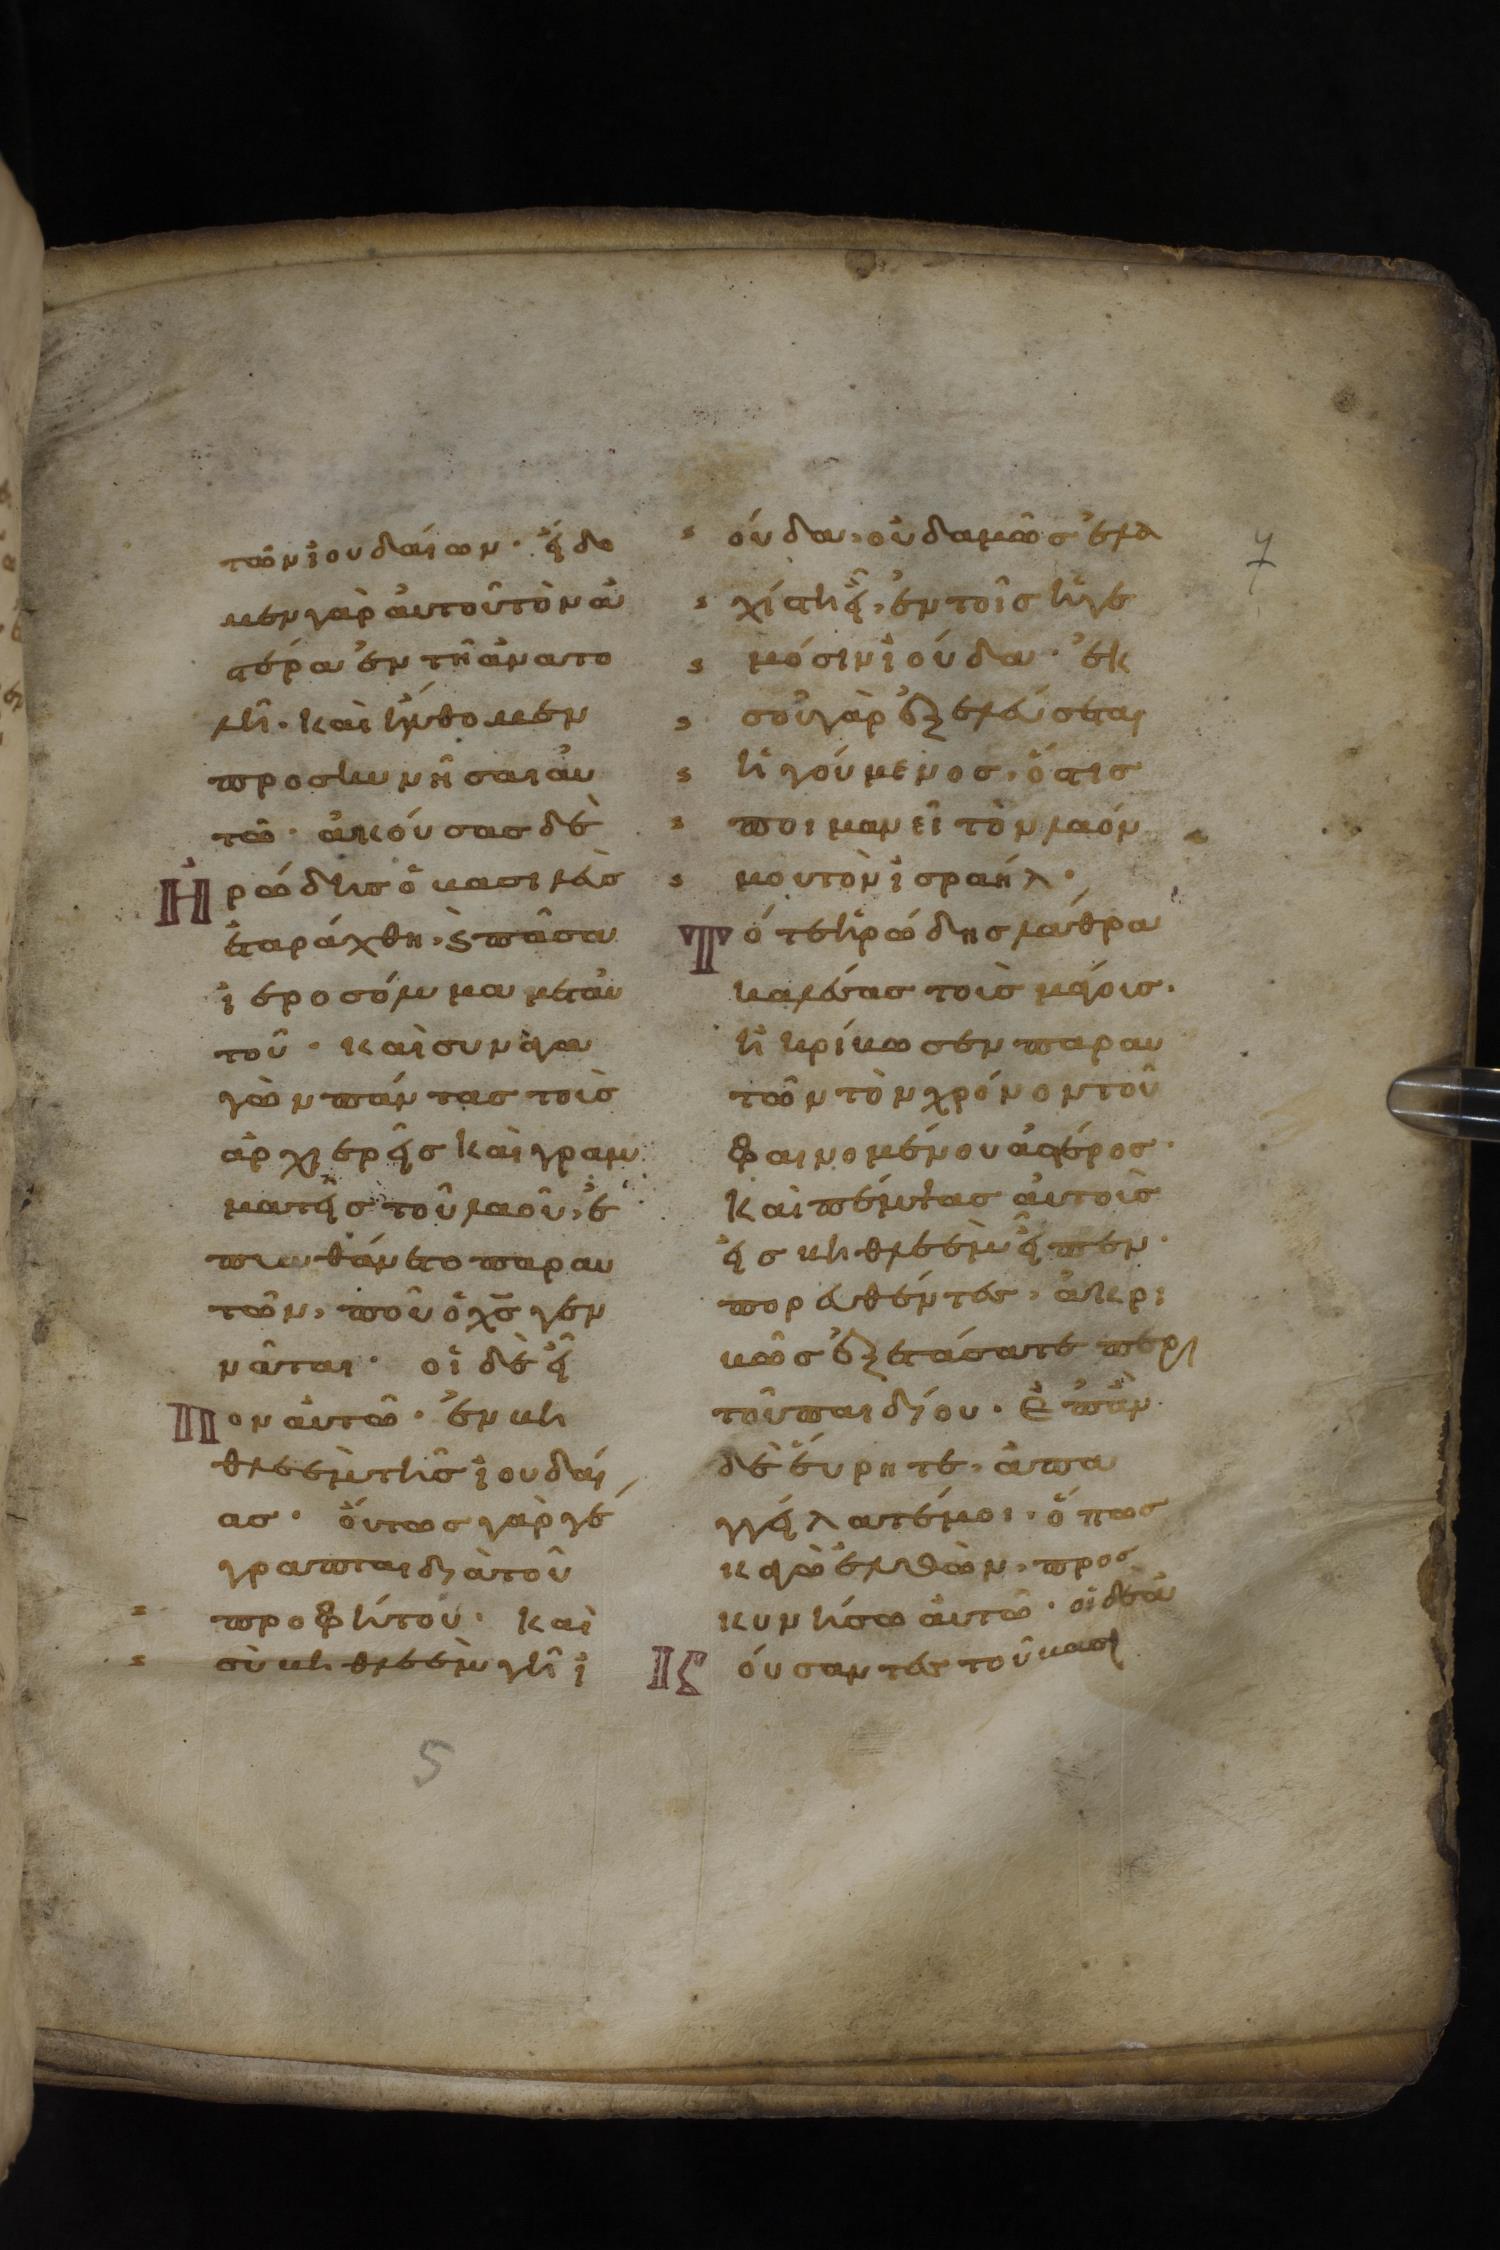 τῶν ἰουδαίων· εἴδο
μεν γὰρ αὐτοῦ τὸν ἀ
στέρα ἐν τῆ ἀνατο
λῆ· καὶ ἤλθομεν
προσκυνῆσαι αὐ
τῶ· ἀκούσας δὲ
Ἡρώδης ὁ βασιλεὺς
ἐταράχθη, ϗ πᾶσα
ἱεροσόλυμα μετ αὐ
τοῦ· καὶ συναγα
γὼν πάντας τοὺς
ἀρχιερεῖς καὶ γραμ
ματεῖς τοῦ λαοῦ, ἐ
πυνθάνετο παρ αυ
τῶν, ποῦ ὁ χς γεν
νᾶται· οἱ δὲ εἶ
Πον αὐτῶ· ἐν βη
θλεὲμ τῆς ἰουδαί
ας· οὕτως γὰρ γέ
γραπται διὰ τοῦ
προφήτου· καὶ
σὺ βηθλεὲμ γῆ ἰ
ούδα, οὐδαμῶς ἐλα
χίστη εἶ, ἐν τοῖς ἡγε
μόσιν ἰούδα· ἐκ
σοῦ γὰρ ἐξελεύσεται
ἡγούμενος, ὅστις
ποιμανεῖ τὸν λαόν
μου τὸν ἰσραήλ·
Τότε ἡρώδης λάθρα
καλέσας τοὺς μάγους·
ἠκρίβωσεν παρ αυ
τῶν τὸν χρόνον τοῦ
φαινομένου ἀστέρος·
καὶ πέμψας αὐτοὺς
εἰς βηθλεὲμ εἶπεν·
πορευθέντες, ἀκρι
βῶς ἐξετάσατε περὶ
τοῦ παιδίου· Ἐπὰν
δὲ εὕρητε, ἀπα
γγείλατέ μοι· ὅπως
κἀγὼ ἐλθὼν, προσ
κυνήσω αὐτῶ· οἱ δὲ ἀ
Κούσαντες τοῦ βασι
7
5